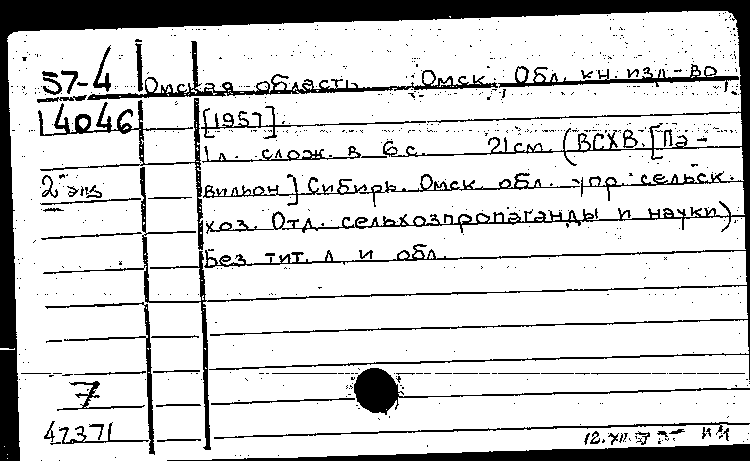 57-4 Омская область Омск, Обл. кн. изд-во,
14046 [1957].
1 л. слож. в 6 с. 21 см. (ВСХВ. [Па-
2 экз вильон] Сибирь. Омск. обл. упр. сельск.
хоз. Отд. сельхозпропаганды и науки)
Без тит. л. и обл.
7
47371 12.XII.57